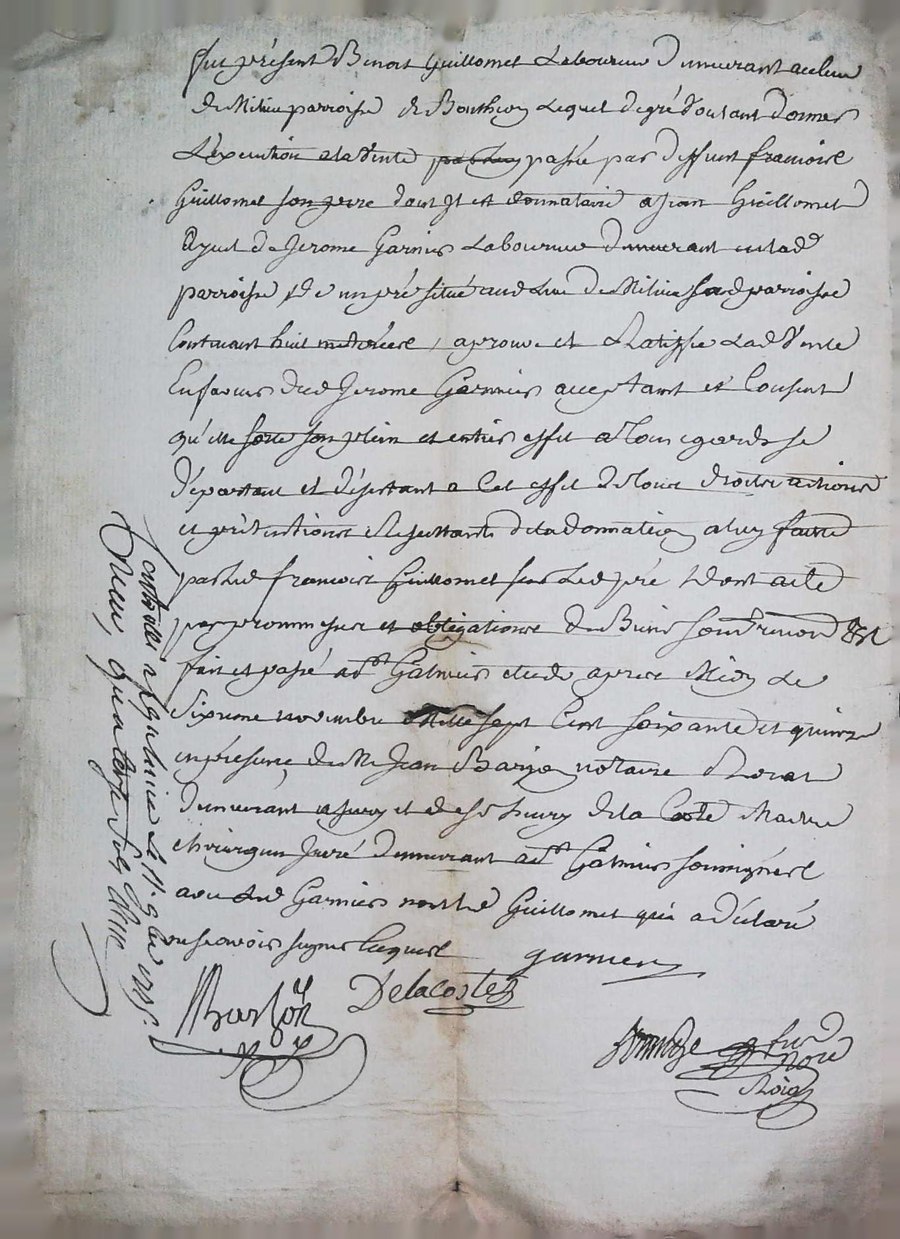 fut présent Benoit Guillomet Laboureur Demeurant au lieu
de Milieu parroisse de Bouthéon Lequel de gré voulant donner
L'execution a la vente passée par deffunt francoise
Guillomet son pere dont Jl est donnataire a Jean Guillomet
Ayeul de Jerome Garnier Laboureur demeurant en lad
parroisse de un pré situé aud Lieu de Milieu sad parroisse
Contenant huit meterée, aprouve et Ratiffie Lad vente
En faveur dud Jerome Garnier acceptant et Consent
qu'elle sorte son plein et entier effet a tous egards se
départant et désistant a Cet effet de tous droits actions
et prétentions Resultants de la donnation a luy faitte
par led francoise Guillomet sur Led pré Dont acte
par promesses et obligations de Biens soum renon &c
fait et passé a St Galmier etude apres Midy Le
Sixieme novembre Mille sept Cent soixante et quinze
en présence de Me Jean notaire Royal
demeurant a et de sr henry de la Coste Maitre
chirurgien Juré demeurant a St Galmier soussignés
avec Led Garnier non led Guillomet qui a déclaré
ne scavoir signer Requis garnier
Delacoste
Controllé a St Galmier Le 11. 9bre 1775.
Reçu quatorze sols